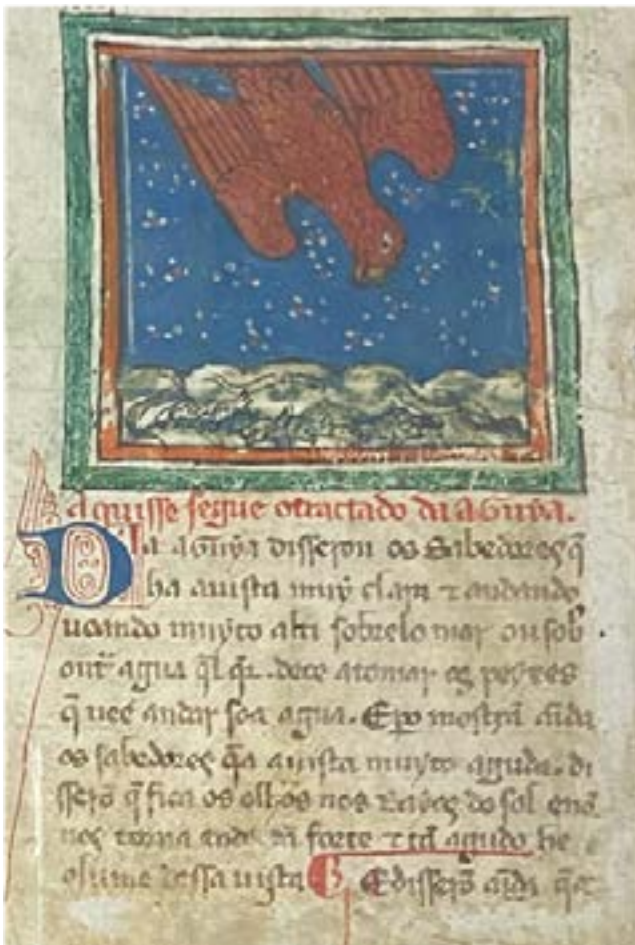 Aquisse segue otractado da aguya.
Da aguya disseron os sabedores q̃
ha auista muy clara ⁊ andando
uoando muyto alta sobrelo mar ou sob
out̃ agua q̃l q̃r. dece atomar os peyxes
q̃ uee andar soa agua. E mostrã aida
os sabedores q̃a auista muyto aguda. di
sserõ q̃ fica os olhos nos rayos do sol
nos torna forte ⁊ tã agudo he
olume dessa uista E disserõ aida q̃a